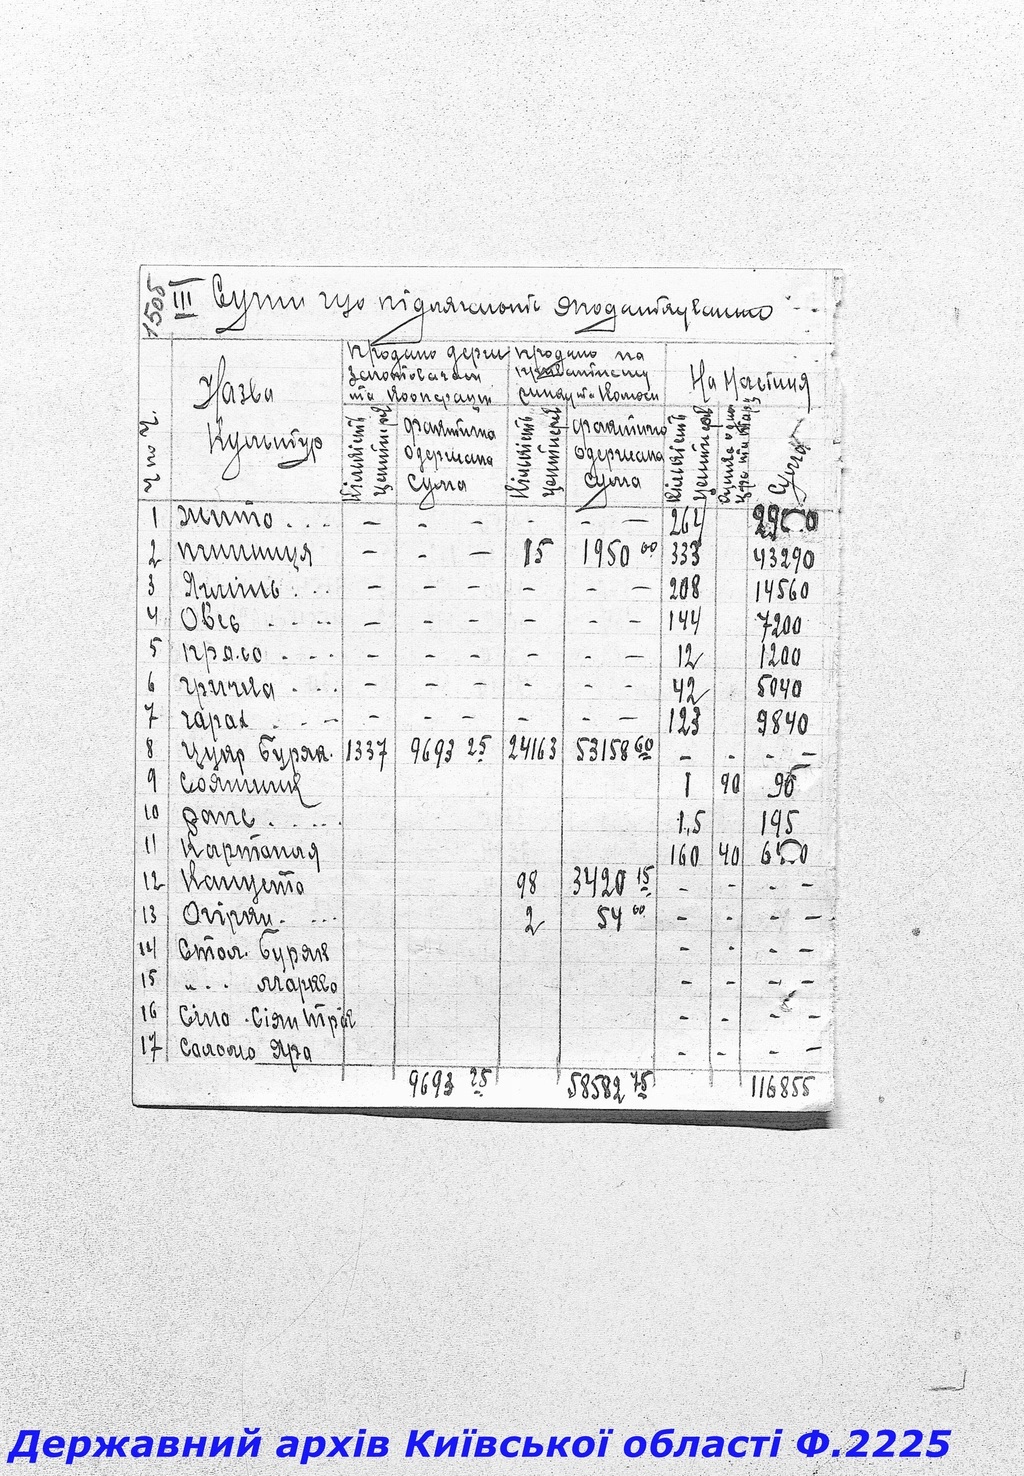 1505
III Суми що підлягають оподаткуванню
Ч по Ч.
Назва Культур
Продано держ заготовачам та кооперації
Продано на приватному ринку та
На частина
Кількість центнерів
фактично одержана сума
Кількість центнерів
фактично одержана сума
Кількість центнерів
Сума
1 Жито . . . – - – - - – 264
2 пшениця – - – 15 1950 00 333 43290
3 Ячмінь . . . – - – - - – 208 14560
4 Овес . . . . – - – - - – 144 7200
5 просо . . . - - – - - – 12 1200
6 гречка . . . - - – - - - 42 5040
7 горох . . – - - – - - – 123 9840
8 Цукр буряк. 1337 9693 25 24163 53158 60 – - - –
9 Соняшник 1 90 90
10 рапс . . . . . 1,5 195
11 Картопля 160 40
12 Капуста 98 3420 15 - - - –
13 Огірки. . . . 2 54 00 - - - –
14 Стол. буряк - - - –
15 „ . . морква - - - –
16 Сіно . Сіян трав - - - –
17 Солома Яра - - - –
9693 25 58582 75 116855
Державний архів Київської області Ф.2225